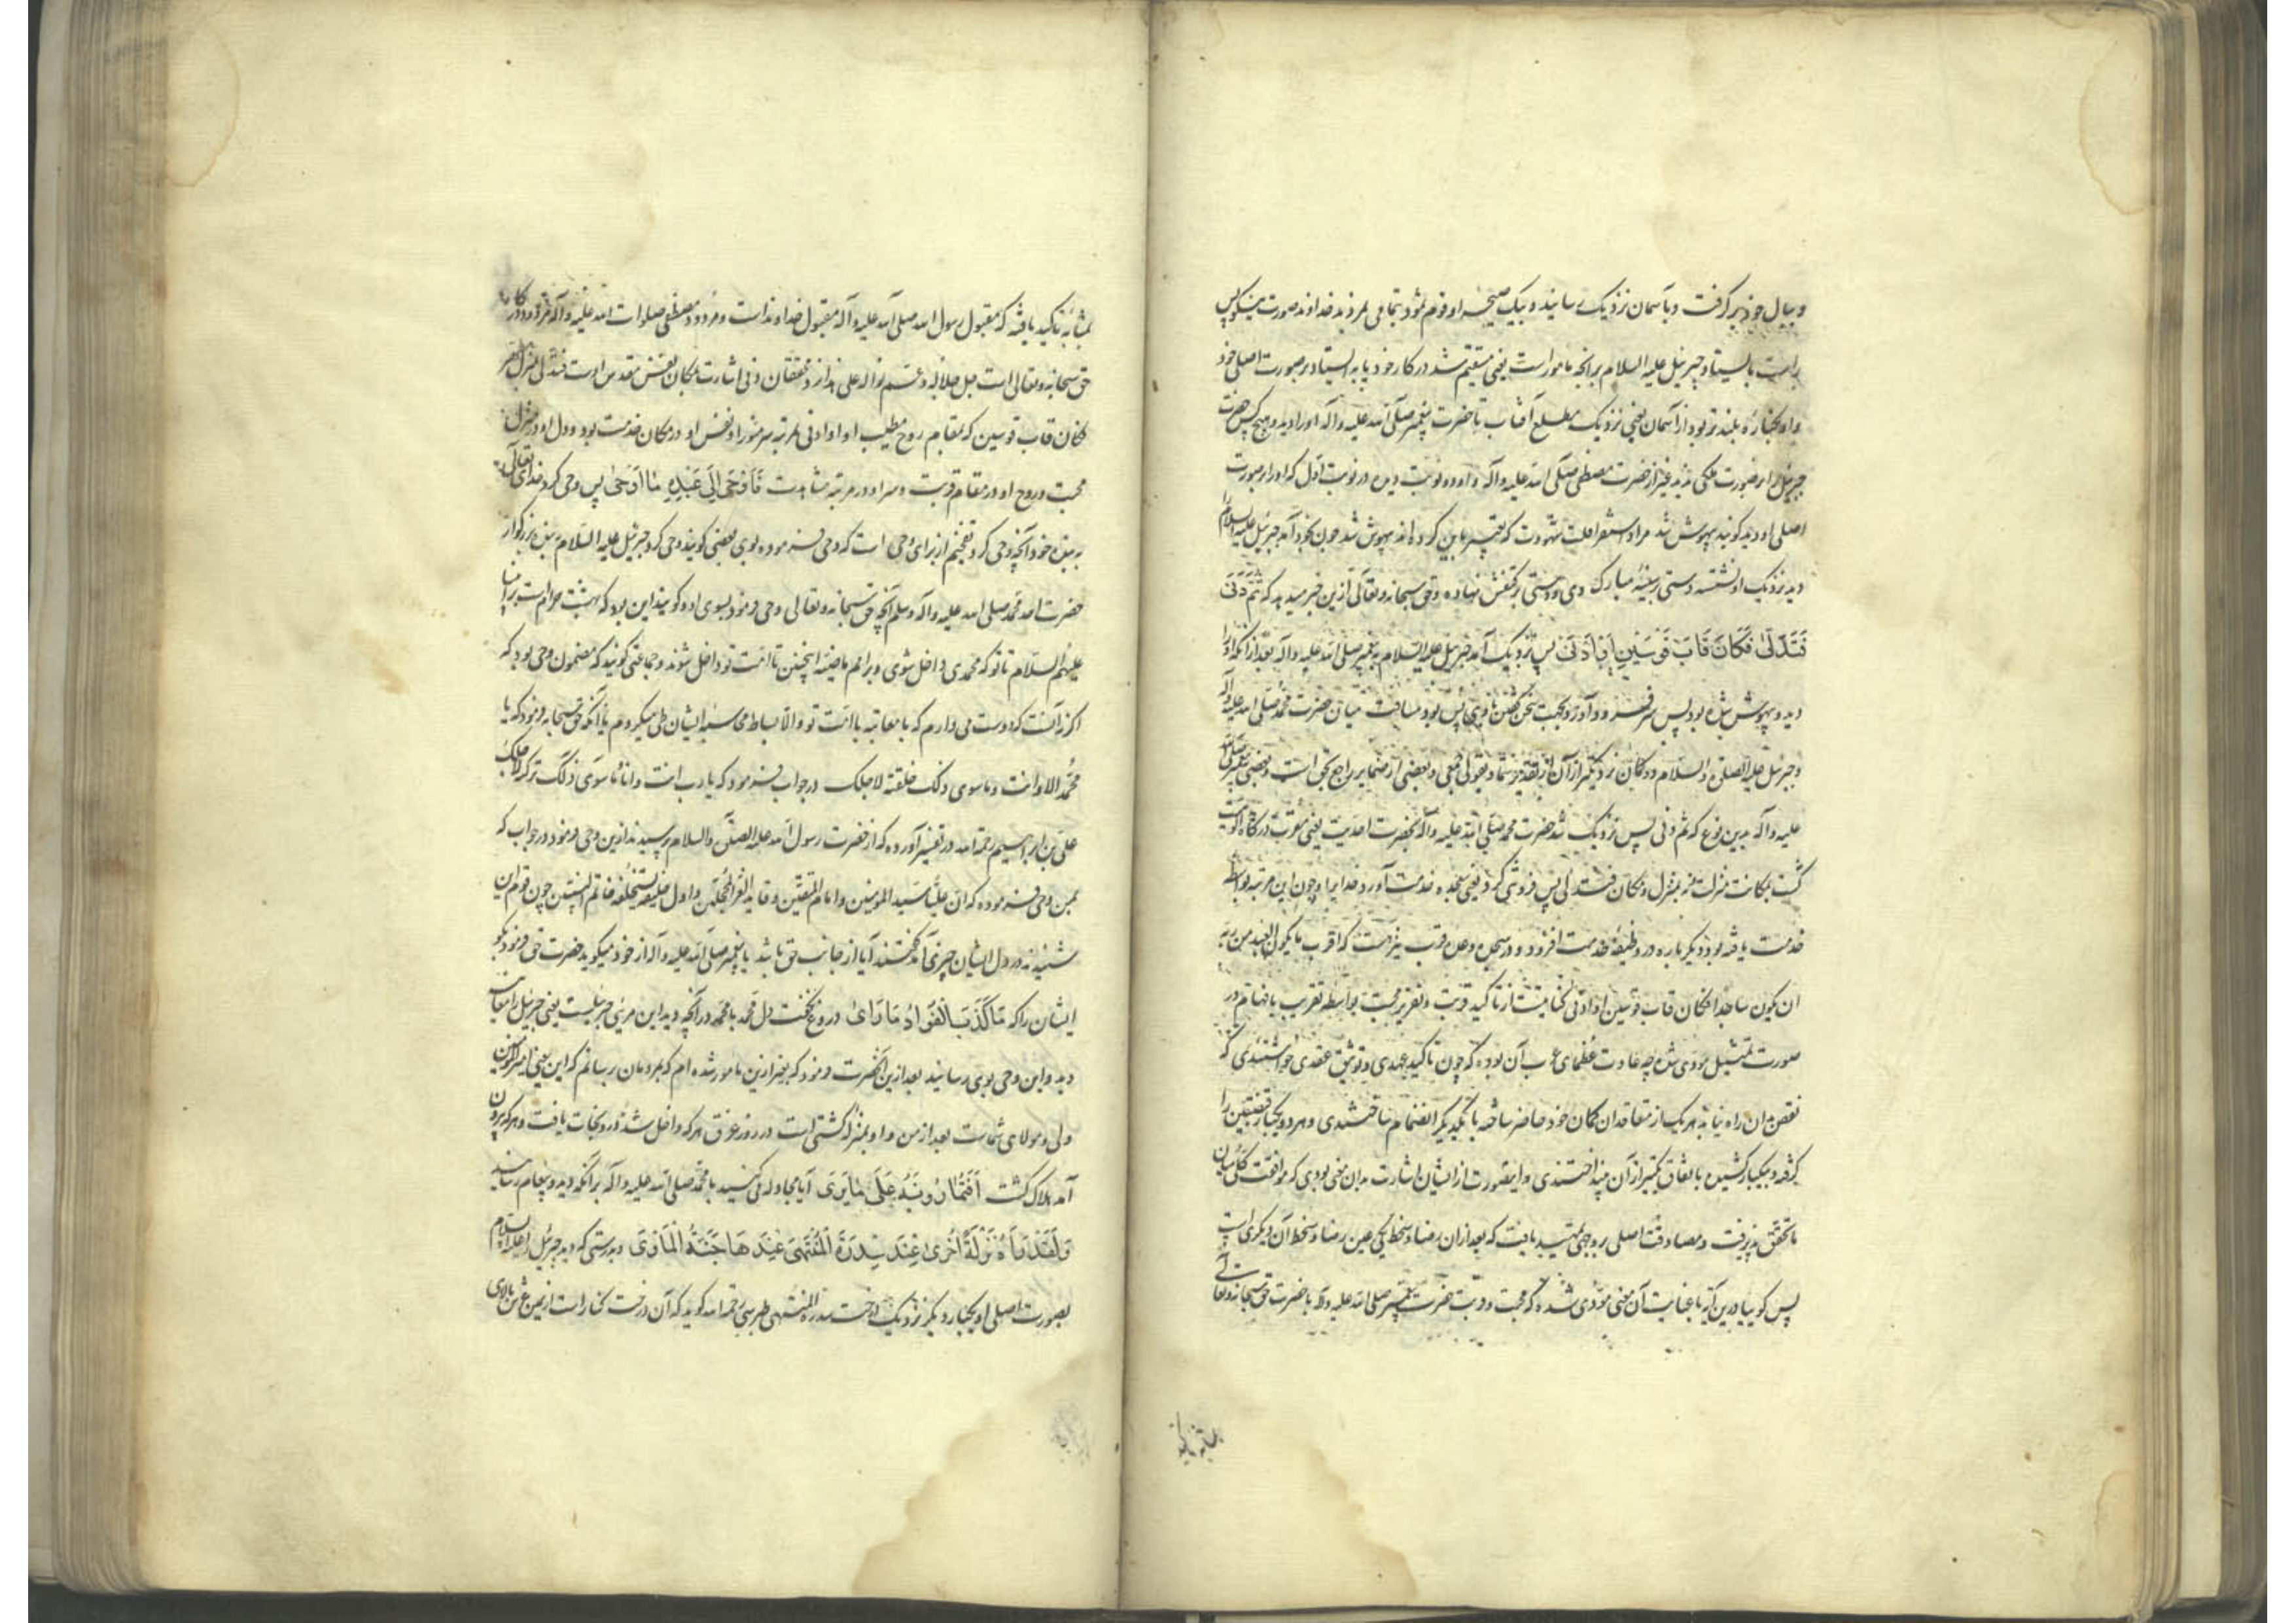 و ببال خود بر گرفت و بآسمان نزدیک رسانید و بیک صیحه او قوم ثمود بتمامی بمردند خداوند صورت نیکو پس
راست بایستاد جبرئیل علیه السلام بر انچه مامور است یعنی مستقیم شد در کار خود یا به ایستاد بر صورت اصلی خود
و او بکناره بلند تر بود از آسمان یعنی نزدیک مطلع آفتاب تا حضرت پیغمبر صلی الله علیه و آله او را دید و هیچ کس حضرت
جبرئیل را بر صورت ملکی ندید غیر از حضرت مصطفی صلی الله علیه و آله و او دو نوبت دیده در نوبت اول که او را بر صورت
اصلی او دید گویند بیهوش شد مراد استغراقست شهودت که تعبیر باین کرده اند بیهوش شد چون بخود آمد جبرئیل علیه السلام
دید نزدیک او نشسته دستی بر سینه مبارک وی و دستی بر کتفش نهاده و حق سبحانه و تعالی ازین خبر میدهد که ثُمَّ دَنَى
فَتَدَلَّىٰ فَكَانَ قَابَ قَوْسَيْنِ اَوْ اَدْنَىٰ پس نزدیک آمد جبرئیل علیه السلام به پیغمبر صلی الله علیه و آله بعد از آنکه او را
دید و بیهوش شده بود پس سر فرود آورد بجهت سخن گفتن با وی پس بود مسافت میان حضرت محمد صلی الله علیه و آله
و جبرئیل علیه الصلوة و السلام دو کمان نزدیکتر از آن از تقدیر شما و بقولی فعی و بعضی از ضمایر راجع بحق است و بعضی به پیغمبر صلی الله
علیه و آله بدین نوع که ثم دنی پس نزدیک شد حضرت محمد صلی الله علیه و آله بحضرت احدیت یعنی مقرب درگاه الوهیت
گشت بمکانت منزلت نه بمنزل و مکان فتدلی پس فروتنی کرد یعنی سجده خدمت آورد خدایرا و چون این مرتبه بواسطه
خدمت یافته بود دیگر باره در وظیفه خدمت افزود و در سجده وعده قرب نیز هست که اقرب ما یکون العبد من ربه
ان یکون ساجدا فکان قاب قوسین او ادنی کنایتست از تاکید قربت و تقریر محبت بواسطه تقریب بافهام در
صورت تمثیل مؤدی شده چه عادت عظمای عرب آن بوده که چون تاکید عهدی و توثیق عقدی خواستندی که
نقض بدان راه نیابد هر یک از متعاقدان کمان خود حاضر ساخته با یکدیگر انضمام ساختندی و هر دو بیکبار قبضتین را
گرفته و بیکبار کشیده باتفاق یکتیر از آن بینداختندی و اینصورت از ایشان اشارت بدان معنی بودی که موافقت کلی میان
ما تحقق پذیرفت و مصادقت اصلی روجهی تمهید یافت که بعد از ان رضا و سخط یکی عین رضا و سخط آن دیگری است
پس گوییا درین آیه با عنایت آن معنی مؤدی شده که محبت و قربت حضرت پیغمبر صلی الله علیه و آله با حضرت حق سبحانه و تعالی
بمثابه تاکید یافته که مقبول رسول الله صلی الله علیه و آله مقبول خداوند است و مردود مصطفی صلوات الله علیه و آله مردود درگاه
حق سبحانه و تعالی است جل جلاله و عم نواله علی هذا نزد محققان دنی اشارت بمکان نفس مقدس اوست فتدلی بمنزل
فکان قاب قوسین که بمقام روح مطیب او او ادنی بمرتبه سر منور او نفس او در مکان خدمت بود و دل او در منزل
محبت و روح او در مقام قربت و سر او در مرتبه مشاهدت فَاَوْحَىٰ اِلَىٰ عَبْدِهٖ مَا اَوْحَىٰ پس وحی کرد خدای تعالی
به بنده خود آنچه وحی کرد تفخیم از برای وحی است که وحی فرموده بوی بعضی گویند وحی کرد جبرئیل علیه السلام به بنده بزرگوار
حضرت الله محمد صلی الله علیه و آله و سلم آنچه حق سبحانه و تعالی وحی فرمود بسوی او و گویند این بود که بهشت حرام است بر انبیا
علیهم السلام تا تو که محمدی داخل شوی و بر امم ماضیه اینچنین تا امت تو داخل شوند و جماعتی گویند که مضمون وحی بود که
اگر نه آنست که دوست می دارم که با معاتبه با امت تو و الا بساط محاسبه ایشان طی میکردم یا آنکه حق سبحانه فرمود که یا
محمد انا و انت و ما سوی ذلک خلقته لاجلک در جواب فرمود که یا رب انت و انا و ما سوی ذلک ترکته لاجلک
علی بن ابراهیم رحمه الله در تفسیر آورده که از حضرت رسول الله علیه الصلوة و السلام پرسیدند ازین وحی فرمود در جواب که
بمن وحی فرموده که ان علیا سید المؤمنین و امام المتقین و قاید الغر المحجلین و اول خلیفة یستخلفه خاتم النبیین چون قوم این
شنیدند در دل ایشان چیزی آمد گفتند آیا از جانب حق باشد یا پیغمبر صلی الله علیه و آله از خود میگوید حضرت حق فرمود بگو
ایشان را که مَا كَذَبَ الْفُؤَادُ مَا رَأىٰ دروغ نگفت دل محمد با محمد در آنچه دید این مرئی جبرئیلست یعنی جبرئیل را
دید و این وحی بوی رسانید بعد ازین آنحضرت فرمود که بغیر ازین مامور شده ام که بمردمان رسانم که این یعنی امیر المؤمنین
ولی و مولای شماست بعد از من و او بمنزله کشتی است در روز غرق هر که داخل شد در و نجات یافت و هر که بیرون
آمد هلاک گشت اَفَتُمَارُونَهُ عَلَىٰ مَا يَرَىٰ آیا مجادله می کنید با محمد صلی الله علیه و آله بر آنکه دید و پیغام رسانید
وَلَقَدْ رَآهُ نَزْلَةً اُخْرَىٰ عِنْدَ سِدْرَةِ الْمُنْتَهَىٰ عِنْدَهَا جَنَّةُ الْمَأْوَىٰ و بدرستی که دید جبرئیل را علیه السلام
بصورت اصلی او یکبار دیگر نزدیک درخت سدرة المنتهی طبرسی رحمه الله گوید که آن درخت کنار است از یمین عرش بالای